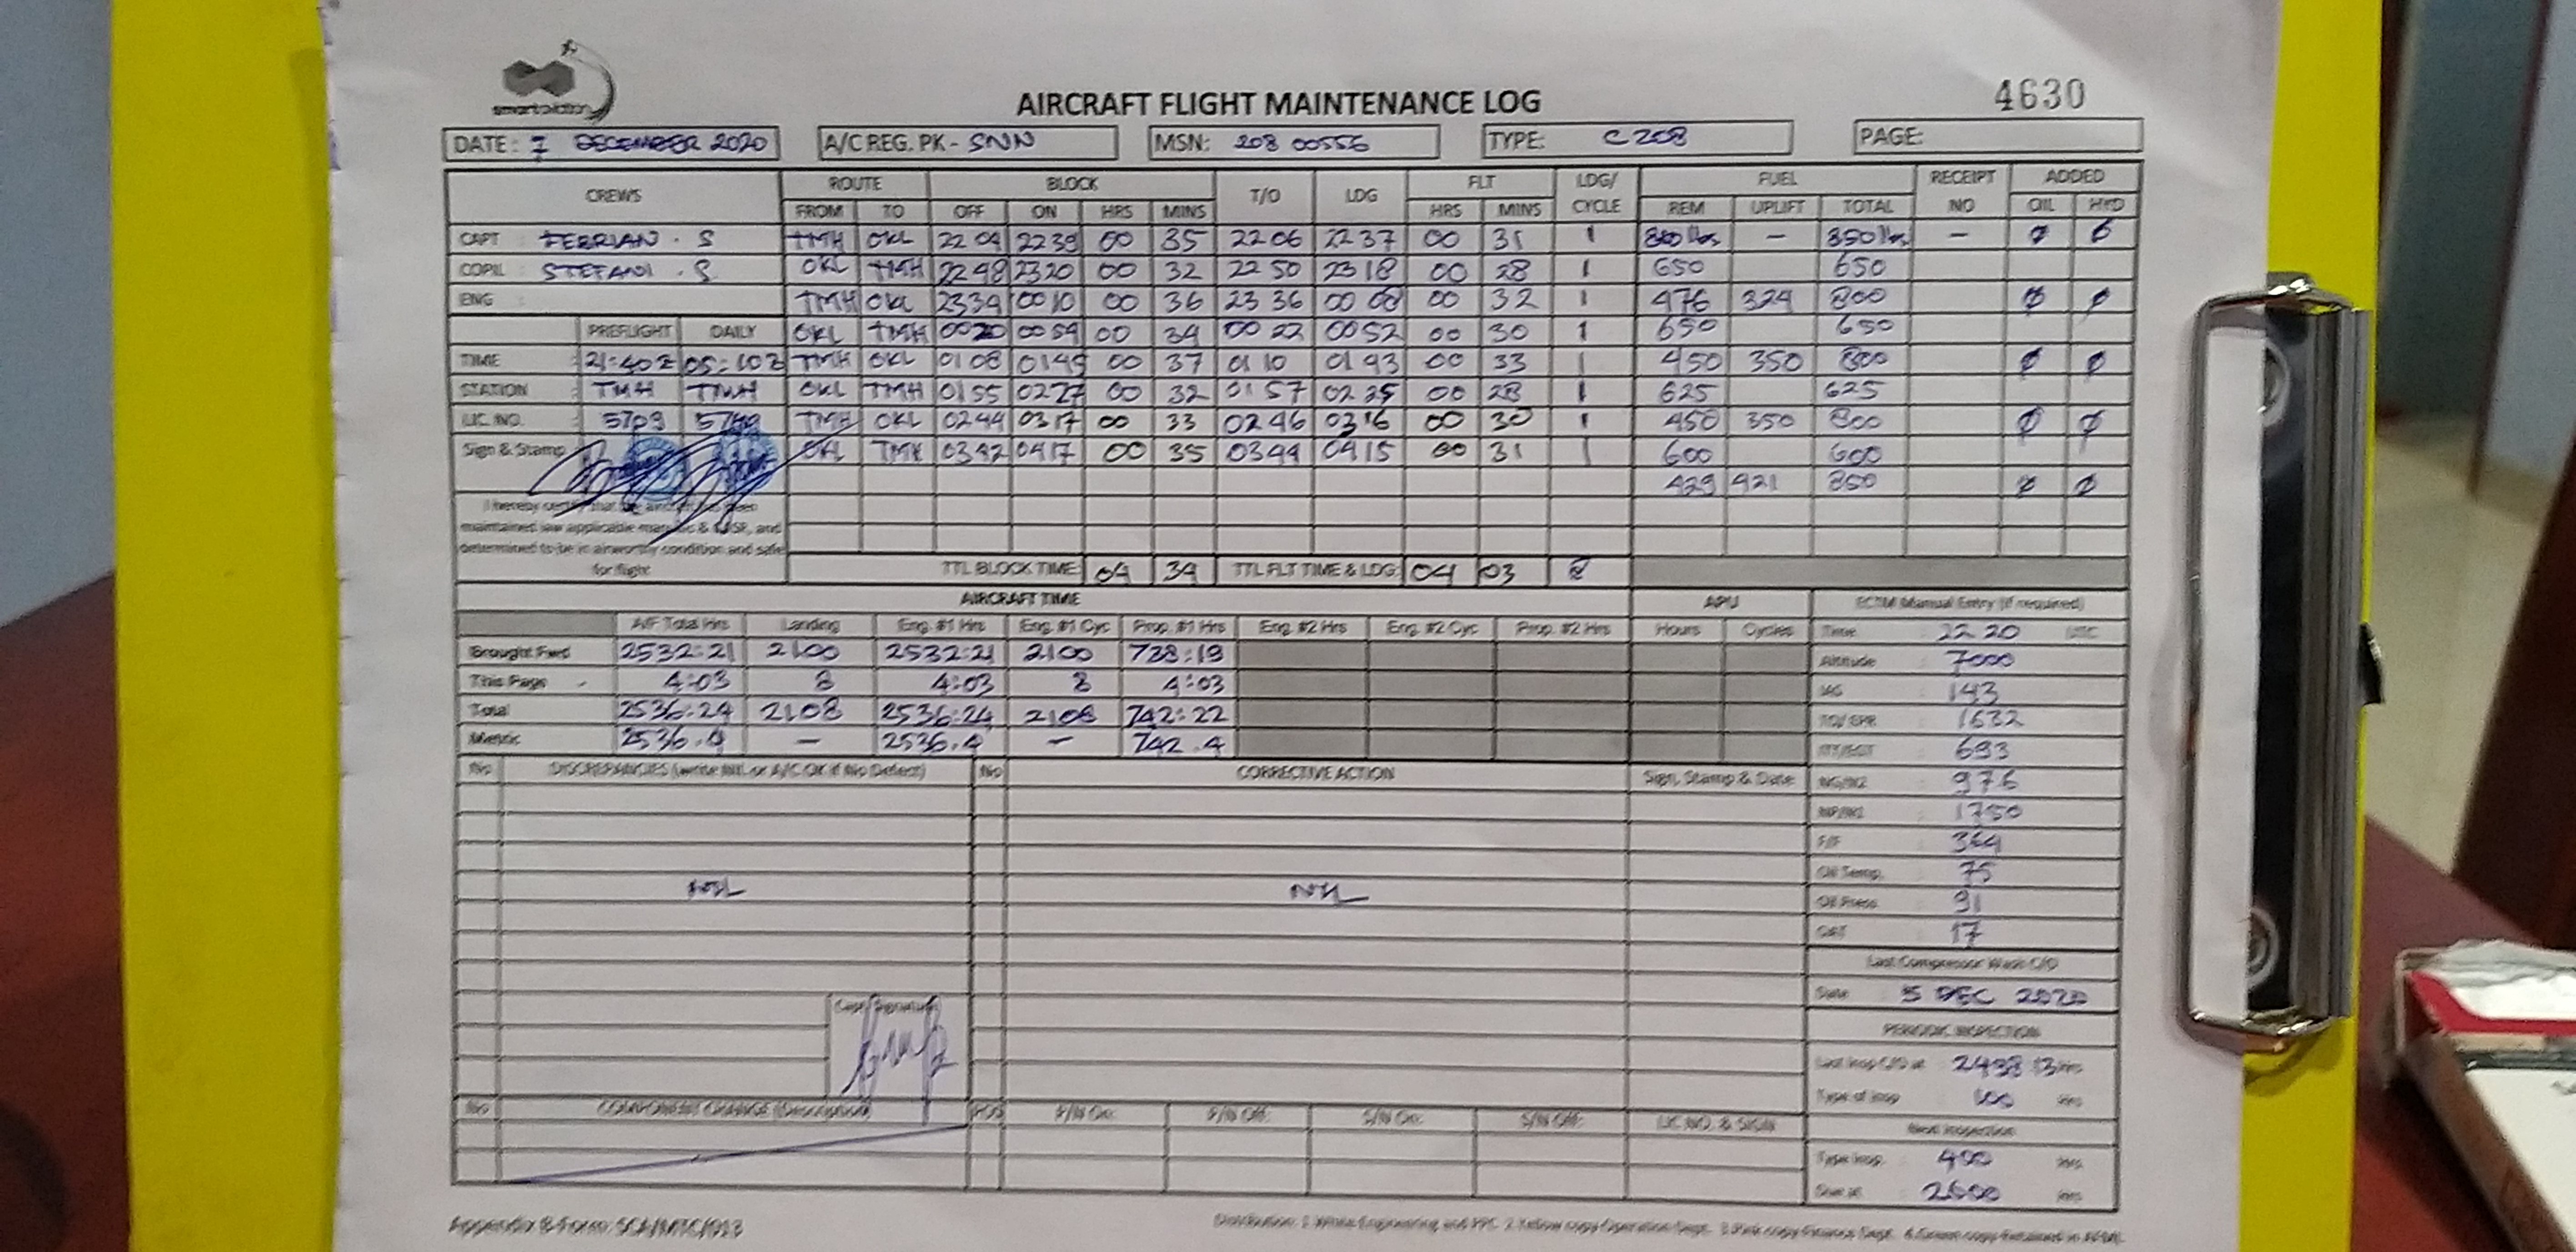 smart aviation
AIRCRAFT FLIGHT MAINTENANCE LOG
4630
DATE: 7 DECEMBER 2020 A/C REG. PK - SNN MSN: 208 00556 TYPE: C 208 PAGE:
CREWS ROUTE BLOCK T/O LDG FLT LDG/ CYCLE FUEL RECEIPT NO ADDED
FROM TO OFF ON HRS MINS HRS MINS REM UPLIFT TOTAL OIL HYD
CAPT : FEBRIAN . S TMH OKL 22 04 22 39 00 35 22 06 22 37 00 31 1 850 lbs - 850 lbs - Ø Ø
COPIL : STEFANI . S OKL TMH 22 48 23 20 00 32 22 50 23 18 00 28 1 650 650
ENG : TMH OKL 23 34 00 10 00 36 23 36 00 08 00 32 1 476 324 800 Ø Ø
PREFLIGHT DAILY OKL TMH 00 20 00 54 00 34 00 22 00 52 00 30 1 650 650
TIME : 21:40Z 05:10Z TMH OKL 01 08 01 45 00 37 01 10 01 43 00 33 1 450 350 800 Ø Ø
STATION : TMH TMH OKL TMH 01 55 02 27 00 32 01 57 02 25 00 28 1 625 625
LIC. NO. : 5709 TMH OKL 02 44 03 17 00 33 02 46 03 16 00 30 1 450 350 800 Ø Ø
Sign & Stamp OKL TMH 03 42 04 17 00 35 03 44 04 15 00 31 1 600 600
429 421 850 Ø Ø
I hereby certify that the aircraft has been
maintained iaw applicable manuals & and
determined to be in airworthy condition and safe
for flight
TTL BLOCK TIME: 04 34 TTL FLT TIME & LDG: 04 03 8
AIRCRAFT TIME APU ECTM Manual Entry (if required)
A/F Total Hrs Landing Eng. #1 Hrs Eng. #1 Cyc Prop. #1 Hrs Eng. #2 Hrs Eng. #2 Cyc Prop. #2 Hrs Hours Cycles Time : 22 20 UTC
Brought Fwd 2532:21 2100 2532:21 2100 738:19 Altitude : 7000
This Page 4:03 8 4:03 8 4:03 IAS : 143
Total 2536:24 2108 2536:24 2108 742:22 TQ/EPR : 1632
Metric 2536.4 - 2536.4 - 742.4 ITT/EGT : 693
No DISCREPANCIES (write NIL or A/C OK if No Defect) No CORRECTIVE ACTION Sign, Stamp & Date NG/N2 : 976
NP/N1 : 1750
F/F : 364
Oil Temp. : 75
NIL NIL
Oil Press : 91
OAT : 17
Last Compressor Wash C/O
Date : 5 DEC 2020
Capt Signature
PERIODIC INSPECTION
Last Insp C/O at : 2498:13 Hrs
Type of Insp : 100 Hrs
No COMPONENT CHANGE (Description) POS P/N On: P/N Off: S/N On: S/N Off: LIC NO. & SIGN
Next Inspection
Type Insp. : 400 Hrs
Due at : 2600 Hrs
Appendix B-Form: SCA/MTC/023
Distribution: 1. White: Engineering, and PPC. 2. Yellow copy: Operation Dept. 3. Pink copy: Finance Dept.